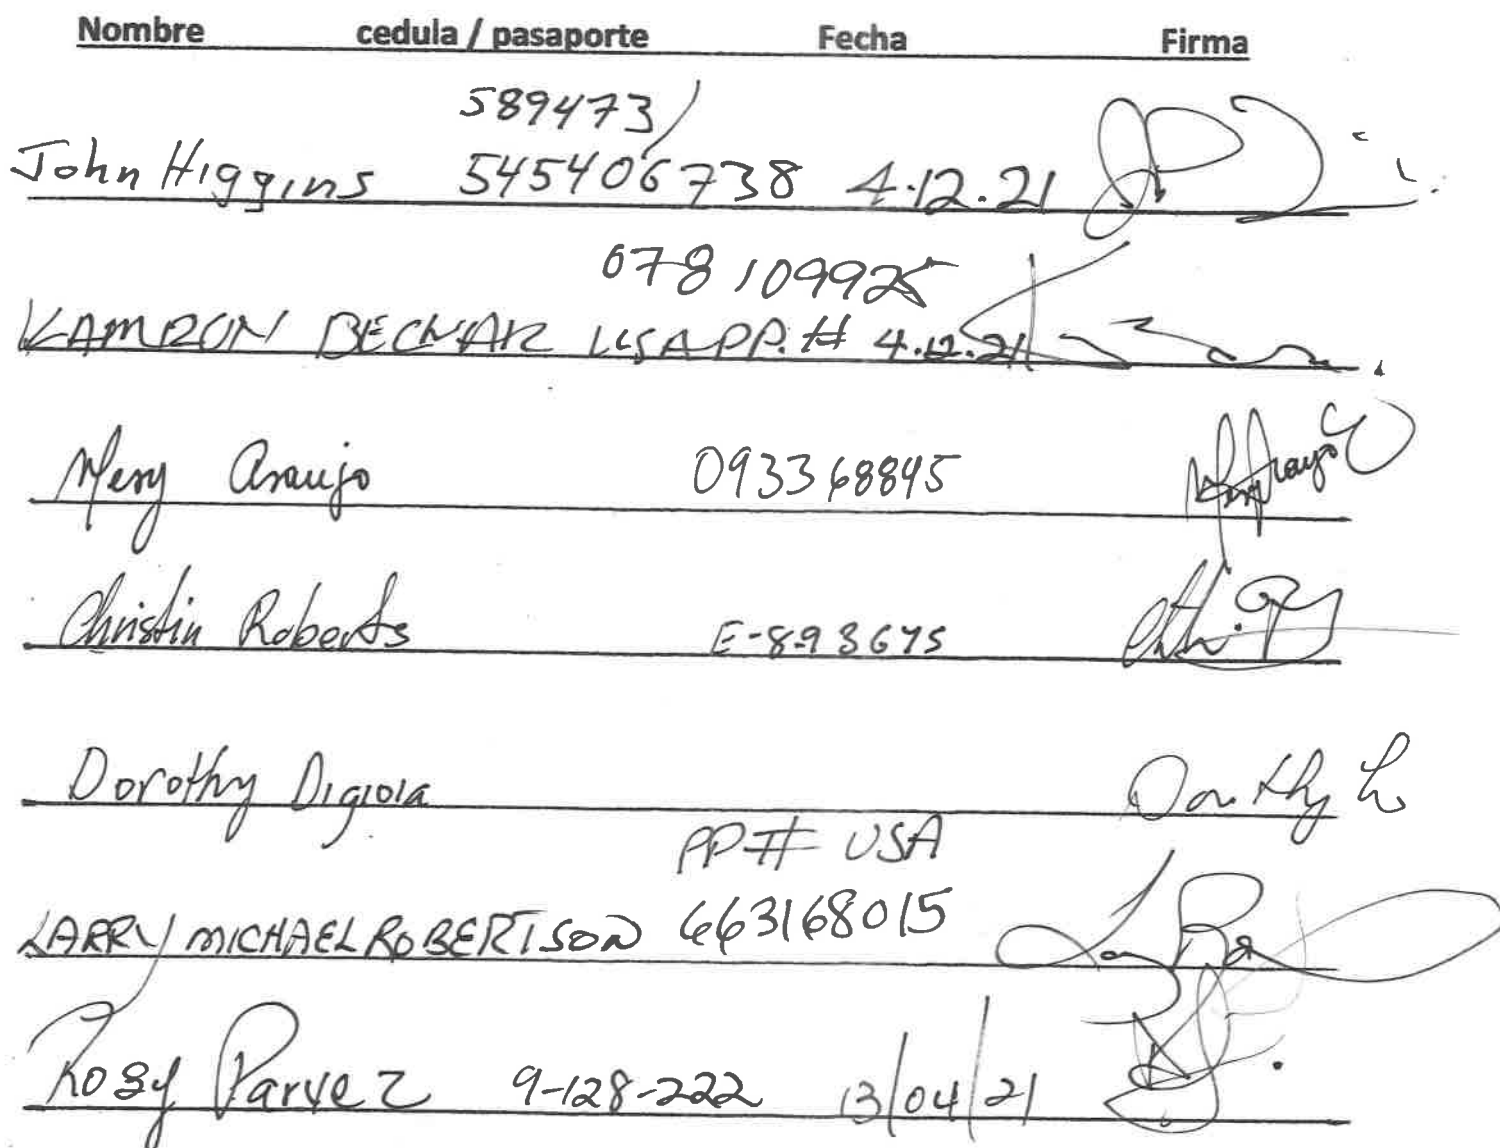 Nombre cedula / pasaporte Fecha Firma
589473/
John Higgins 545406738 4.12.21
078109925
KAMRON BECNAR USA PP. # 4.12.21
Mery Araujo 093368845
Christin Roberts E-893675
Dorothy Digioia Dorothy
PP# USA
LARRY MICHAEL ROBERTSON 663168015
Rosy Parvez 9-128-222 13/04/21